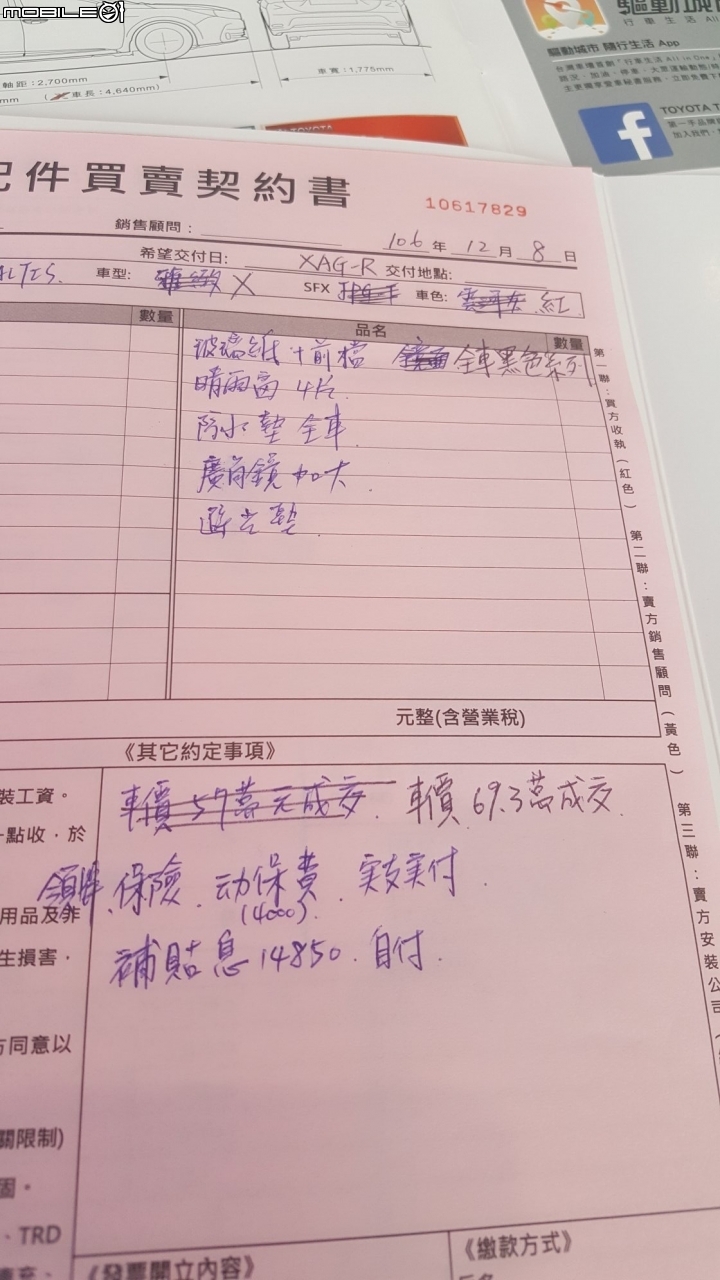 MOBILE01
軸距：2,700mm
車寬：1,775mm
mm
車長：4,640mm)
驅動城市
行車生活 All
驅動城市 隨行生活 App
TOYOTA
TOYOTA
第一手品牌
加入我們，
件買賣契約書
10617829
銷售顧問：
106 年 12 月 8 日
希望交付日：
XAG-R 交付地點:
ALTIS. 車型: 雅緻 X SFX
車色: 紅
數量
品名
數量
玻璃紙 + 前檔 全車黑色系列
晴雨窗 4片
防水墊 全車
廣角鏡 加大
避光墊
第一聯：買方收執（紅色）
第二聯：賣方銷售顧問（黃色）
第三聯：賣方安裝公司
元整(含營業稅)
《其它約定事項》
裝工資。
點收，於
用品及非
生損害，
方同意以
關限制)
固。
、TRD
車價 57萬元成交. 車價 69.3萬成交.
領牌. 保險. 动保費. 实支实付.
(4000).
補貼息 14850. 自付.
《發票開立內容》
《繳款方式》